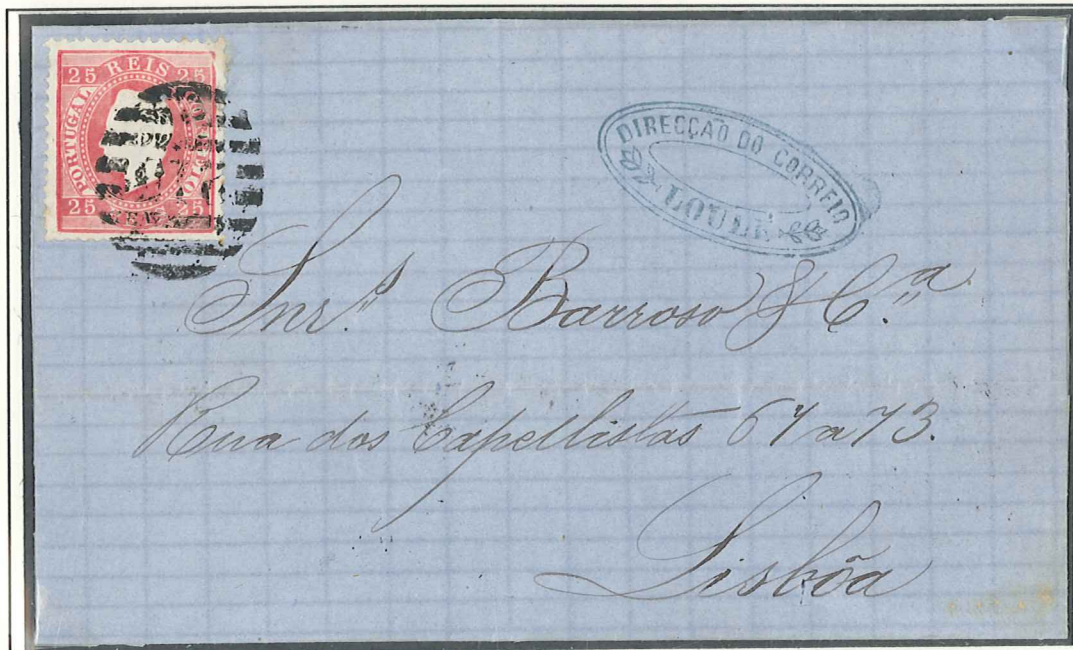 25 REIS 25
PORTUGAL
CORREIO
25 25
DIRECÇÃO DO CORREIO
LOULÉ
Snr.s Barroso & C.ª
Rua dos Capellistas 67 a 73.
Lisbôa